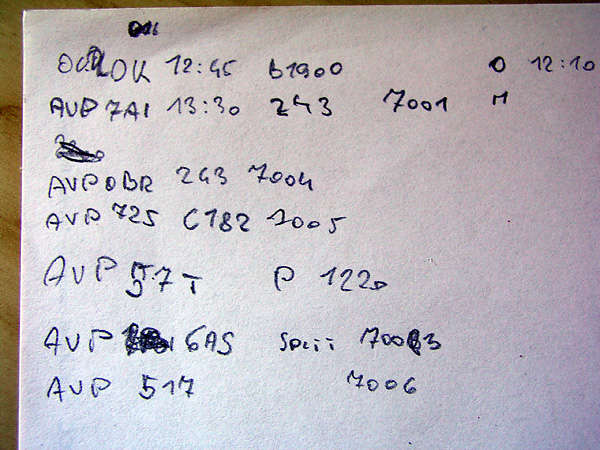 12:45 B1900 O 12:10
AVP 7A1 13:30 243 7001 M
AVP OBR 243 7004
AVP 725 C182 7005
AVP 57T P 1220
AVP 6AS 7003
AVP 517 7006